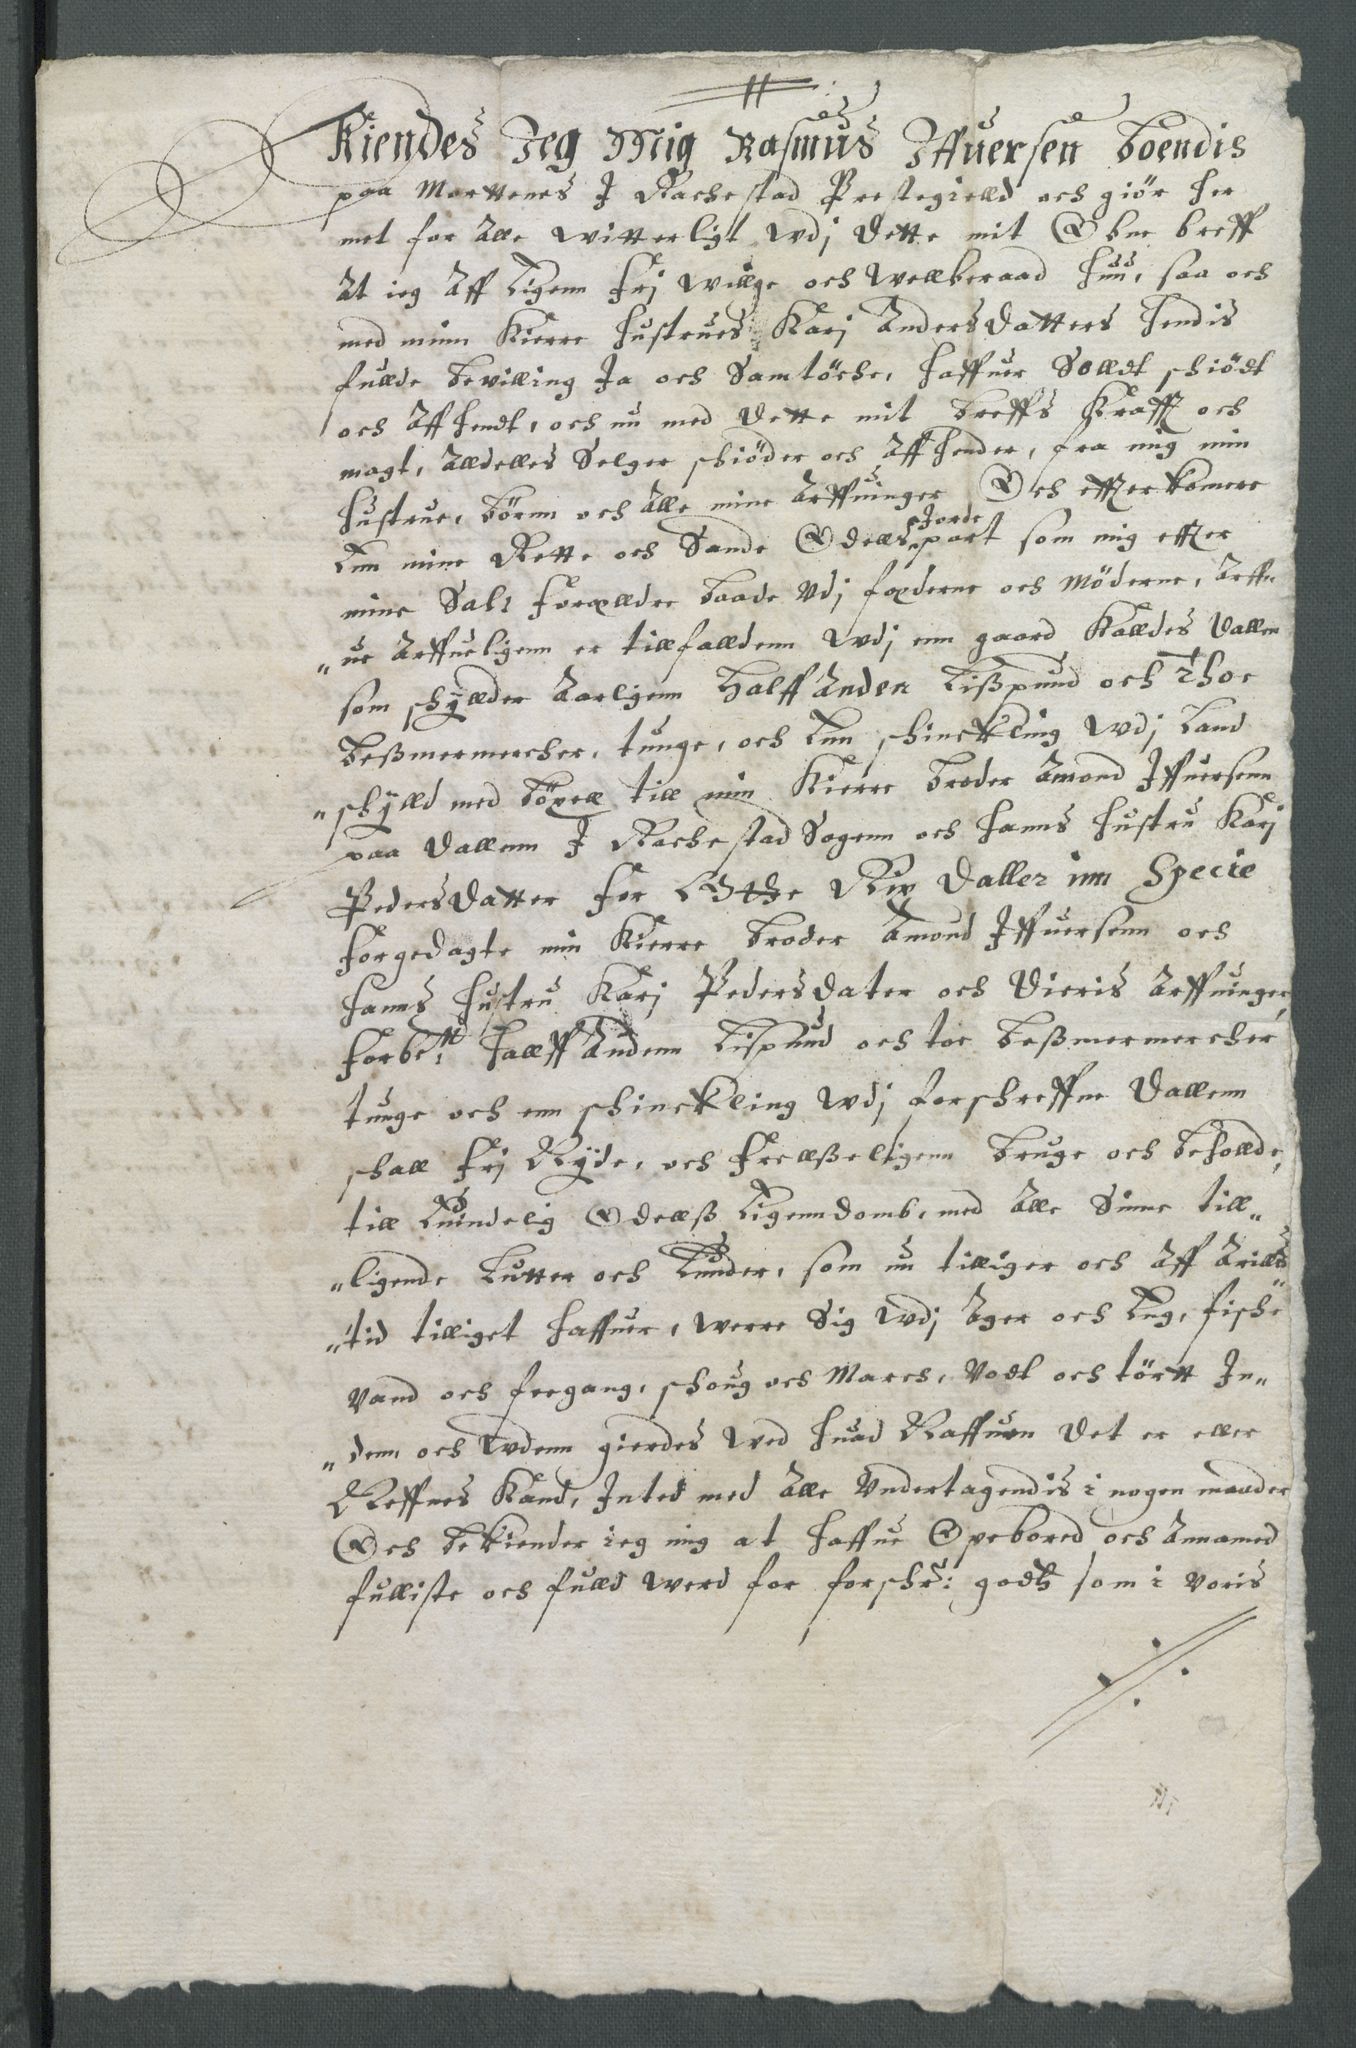 Kiendes Jeg Mig Rasmus Iffuersen boendis
paa Morttenes J Rachestad Prestegielld och giör her
met for alle witterligt wdj dette mit Obne breff
at ieg aff Eigenn frj willge och wellberaad huu, saa och
med minn Kierre hustrues Karj Andersdatters hendis
fullde bevilling Ja och Samtöche, haffuer Solldt schiödt
och affhendt, och nu med dette mit breffs Krafft och
magt, alldelles Selger schiöder och affhender, fra mig min
hustrue, börnn och alle mine arffuinger Och effterkomere
Enn mine Rette och Sande Odells Jorde part som mig effter
mine Sali forælldre baade vdj fæderne och Möderne, arff„
„ue arffueligenn er tillfalldenn wdj enn gaard kalldes Dallen
som schÿllder aarligenn Halff anden Lißpund och Thoe
beßmermercher, tunge, och Enn schinckling wdj Land
„schÿlld med böxell till min Kierre broder Amond Iffuersenn
paa Dallenn J Rachestad Sogenn och hanns hustru Karj
Pedersdatter for Otthe Rix Daller inn Specie
Forgedagte min Kierre broder Amond Iffuersenn och
hanns hustru Karj Pedersdater och Dieris arffuinger,
forbete: hallff andenn Lispund och toe beßmermercher
tunge och enn schinckling wdj forschreffne Dallenn
schall frj Nÿde, och frellßeligenn bruge och beholde,
till Euindelig Odellß Eigenndomb, med alle Sinne till„
„ligende Lutter och Lunder, som nu tilliger och aff arilds
„tid tilliget haffuer, werre Sig wdj ager och Eng, fische
vand och feegang, schoug och March, vodt och tört Jn„
„denn och wdenn gierdes wed huad Naffuen det er eller
Neffnes kand, Inted med alle vndertagendis i nogen maader
Och bekiender ieg mig at haffue Opebored och annamed
fulliste och fulld werd for forschr: godtz som i voris